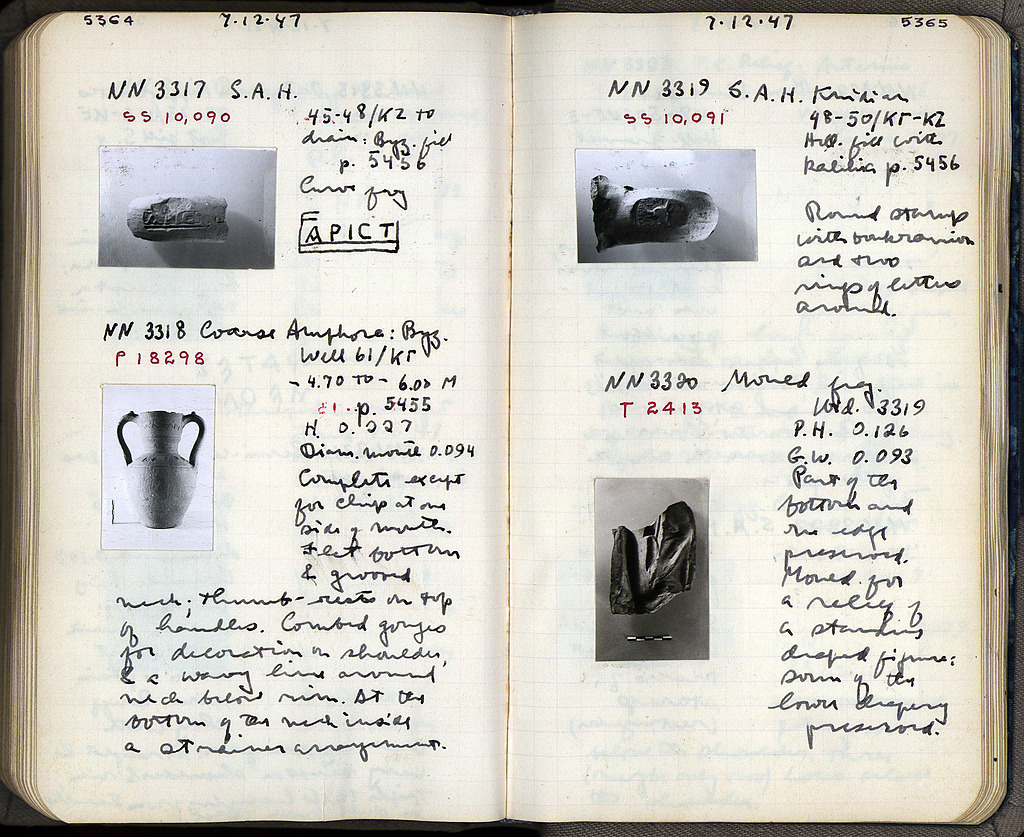 5364
7.12.47
NN 3317 S.A.H.
SS 10,090
45-48/ΚΖ to
drain: Byz. fill
p. 5456
Curve frag
ΑΡΙCΤ
NN 3318 Coarse Amphora: Byz.
P 18298
Well 61/ΚΓ
- 4.70 to - 6.00 M
p. 5455
H. 0.227
Diam. mouth 0.094
Complete except
for chip at one
side of mouth.
Flat bottom
& grooved
neck; thumb-rests on top
of handles. Combed gouges
for decoration on shoulder,
& a wavy line around
neck below rim. At the
bottom of the neck inside
a strainer arrangement.
7.12.47
5365
NN 3319 S.A.H. Knidian
SS 10,091
48-50/ΚΓ-ΚΖ
Hell. fill with
p. 5456
Round stamp
with boukranion
and two
rings of letters
around.
NN 3320 Mould frag.
T 2413
Ibid. 3319
P.H. 0.126
G.W. 0.093
Part of the
bottom and
no edge
preserved.
Mould for
a relief of
a standing
draped figure:
some of the
lower drapery
preserved.